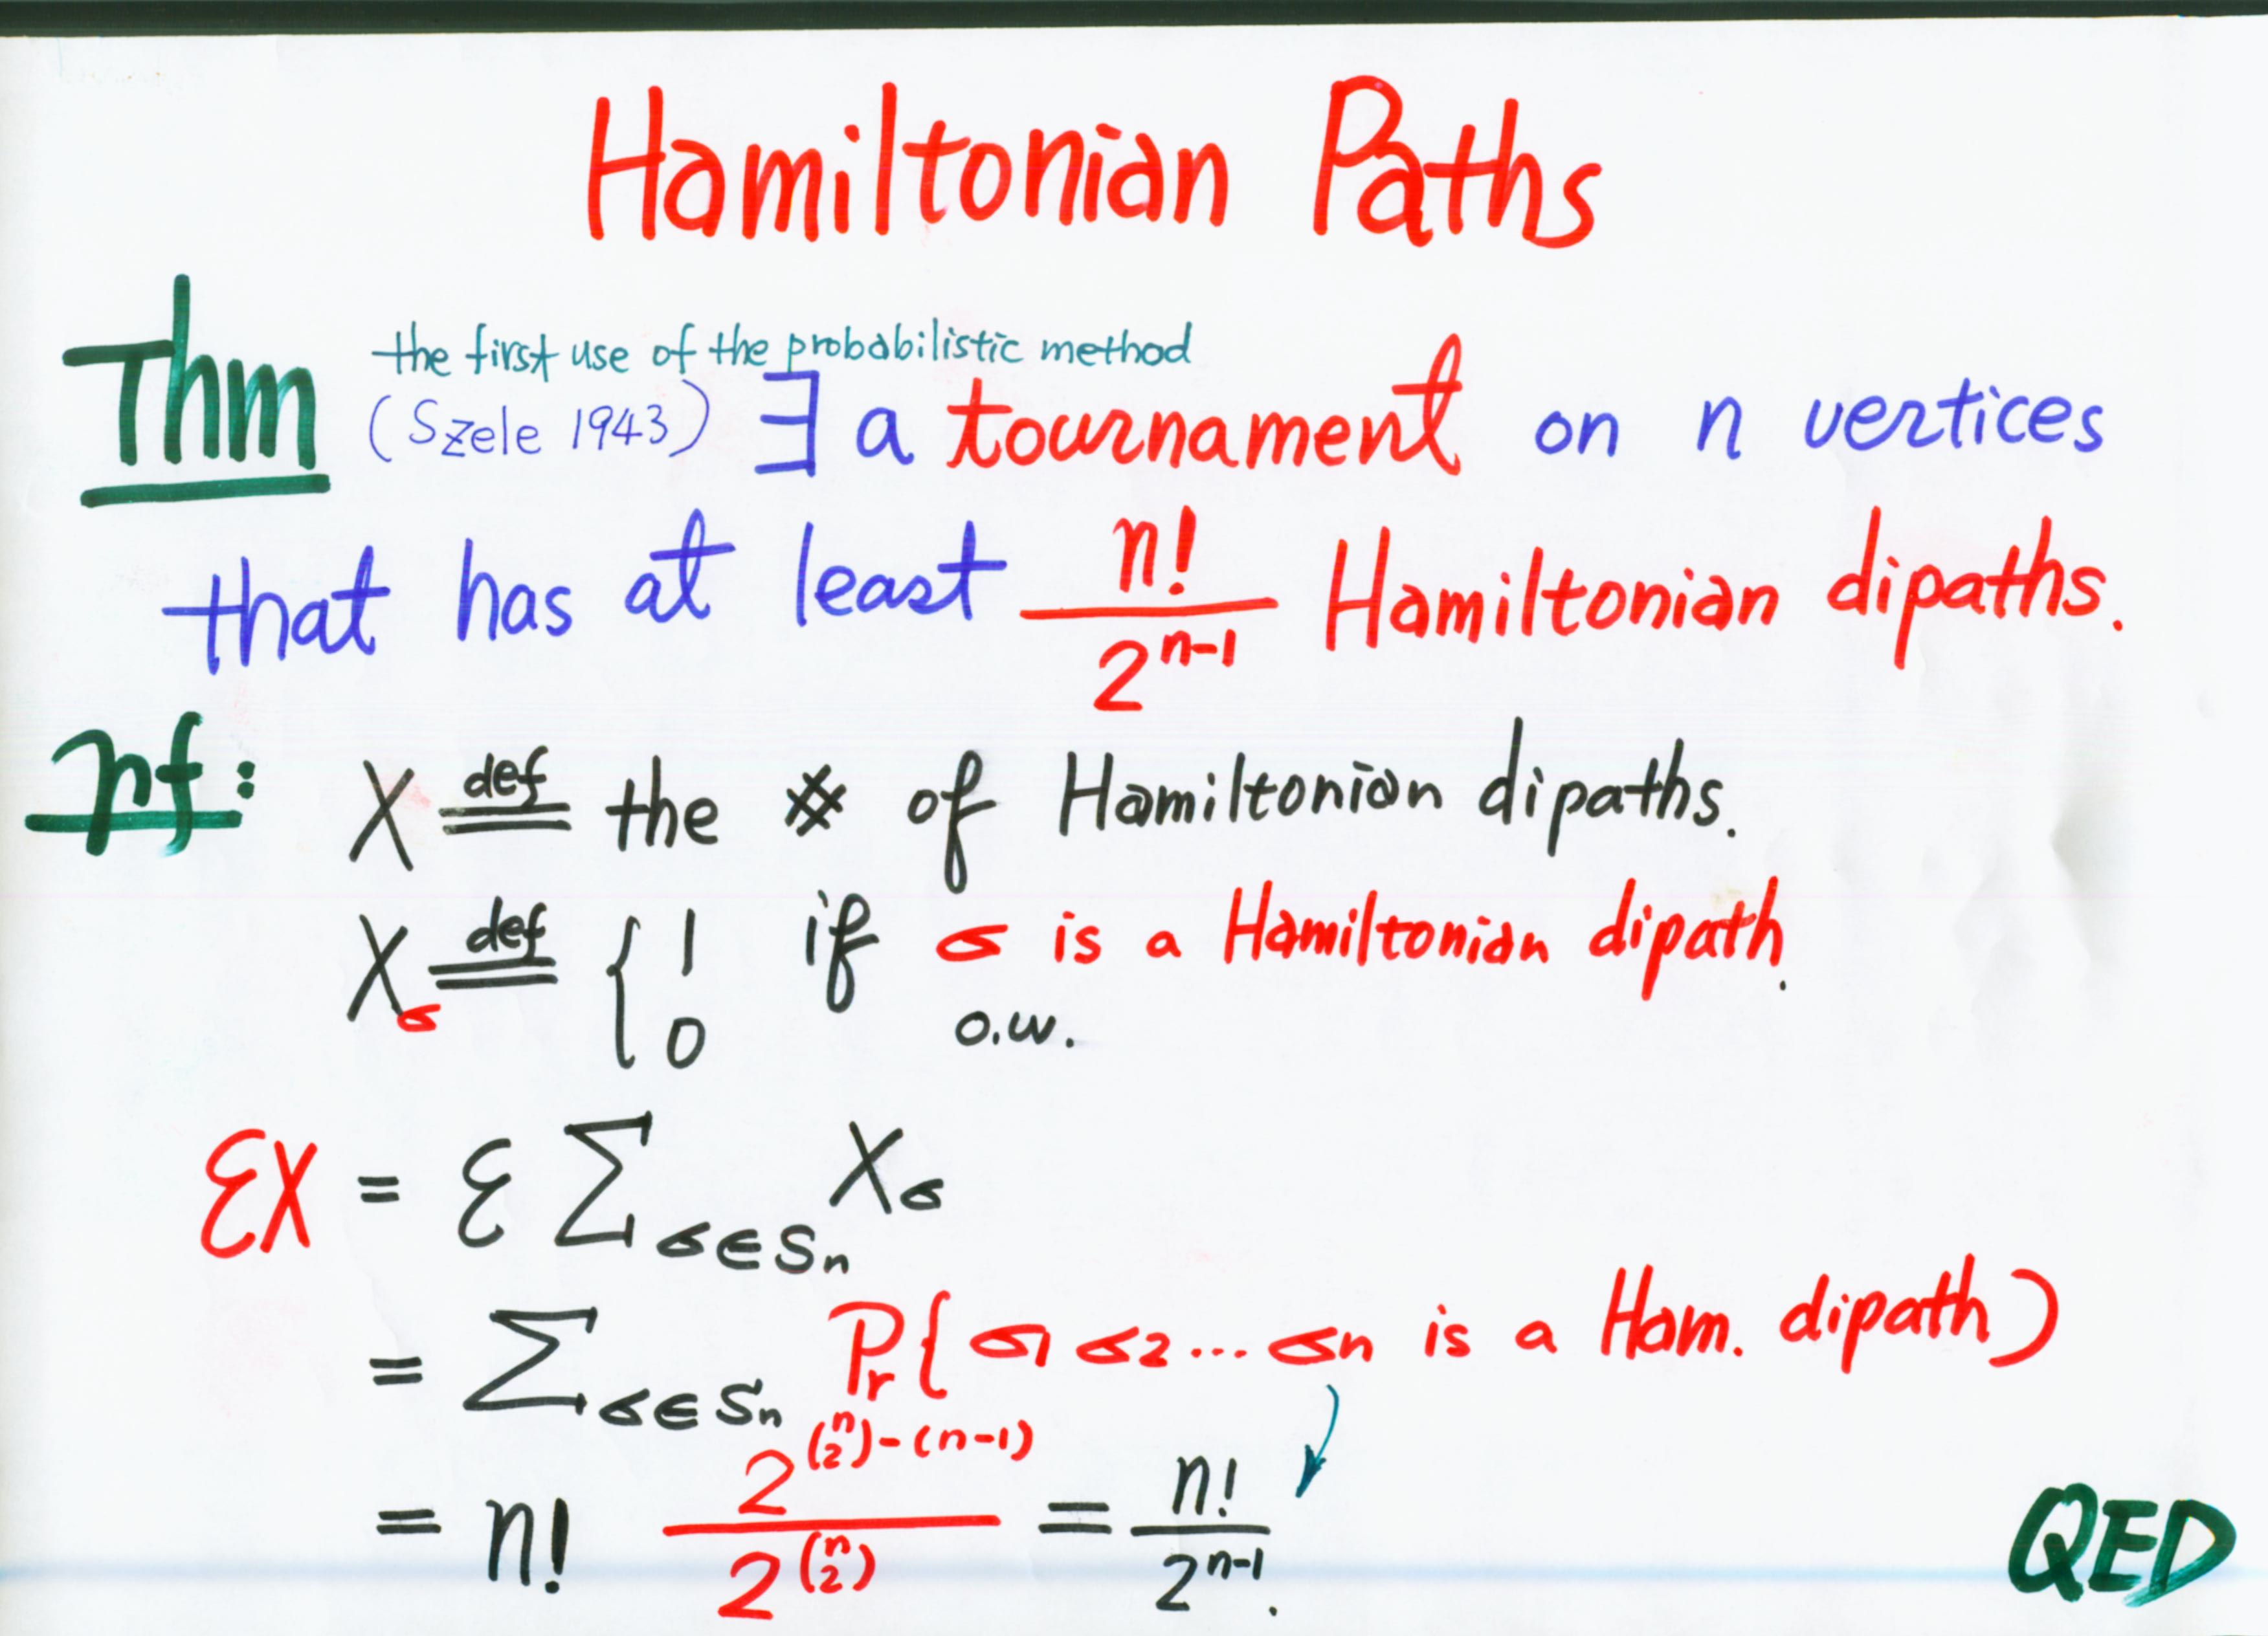 Hamiltonian Paths
the first use of the probabilistic method
Thm (Szele 1943) ∃ a tournament on n vertices
that has at least n!/2^{n-1} Hamiltonian dipaths.
pf: X \stackrel{def}{=} the # of Hamiltonian dipaths.
X_σ \stackrel{def}{=} { 1 if σ is a Hamiltonian dipath.
0 o.w.
εX = ε Σ_{σ∈S_n} X_σ
= Σ_{σ∈S_n} Pr{σ1 σ2 ... σn is a Ham. dipath)
= n! 2^{\binom{n}{2}-(n-1)}/2^{\binom{n}{2}} = n!/2^{n-1}.
QED